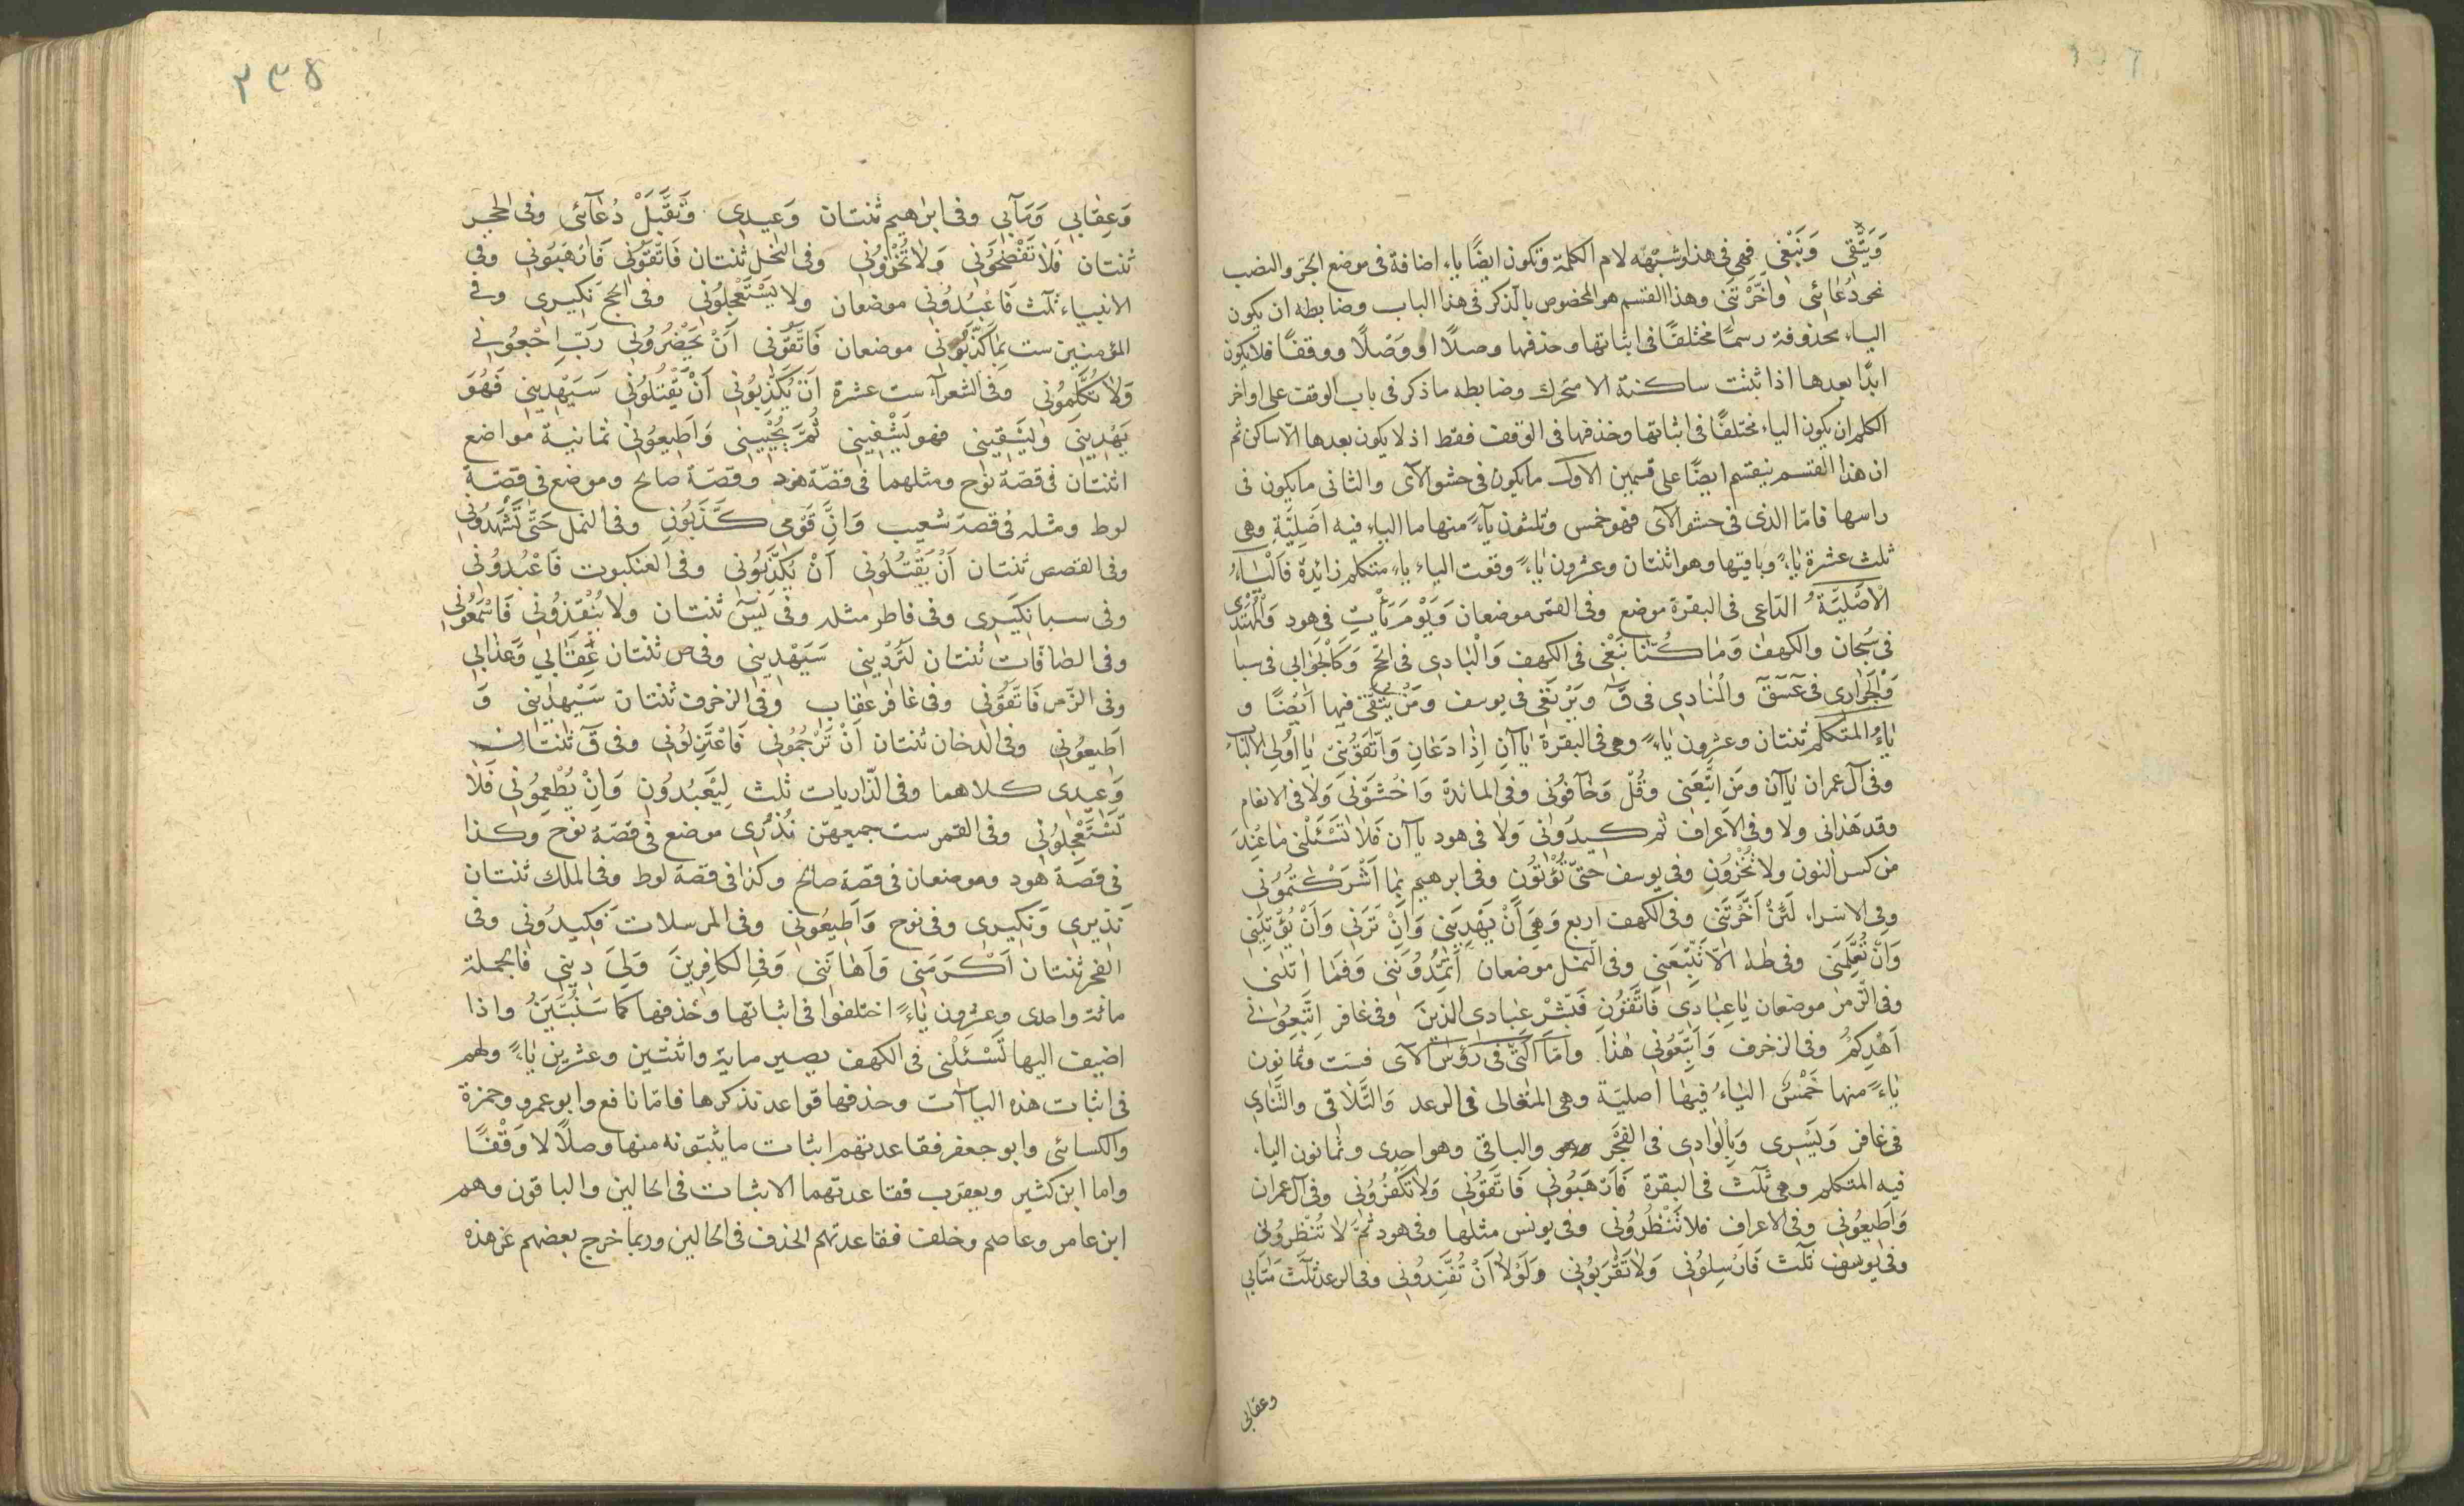 وَيَتَّقِى وَنَبْغِى فهى فى هذا وشبهه لام الكلمة وتكون ايضًا ياء اضافة فى موضع الجر والنصب
نحو دُعَائِى وَاَخَّرْتَنِى وهذا القسم هو المخصوص بالذكر فى هذا الباب وضابطه ان يكون
الياء محذوفة رسمًا مختلفًا فى اثباتها وحذفها وصلًا او وصْلًا ووقفًا فلا يكون
ابدًا بعدها اذا ثبتت ساكنة الا متحرك وضابطه ما ذكر فى باب الوقف على اواخر
الكلم ان يكون الياء مختلفًا فى اثباتها وحذفها فى الوقف فقط اذ لا يكون بعدها الا ساكن ثم
ان هذا القسم ينقسم ايضًا على قسمين الاوّل ما يكون فى حشو الآى والثانى ما يكون فى
راسها فامّا الذى فى حشو الآى فهو خمس وثلثون ياءً منها ما الياء فيه اَصَلِيَّةٌ وهى
ثلث عشرة ياءً وباقيتها وهو اثنتان وعشرون ياءً وقعت الياء ياء متكلم زائدة فَالْيَاءُ
الْاَصْلِيَّةُ الدّاعى فى البقرة موضع وفى القمر موضعان وَيَوْمَ يَأْتِ فى هود وَالْمُهْتَدِى
فى سُبحان والكهف وَمَا كُنَّا نَبْغِى فى الكهف وَالْبَادِى فى الحج وَكَالْجَوَابِى فى سبا
وَالْجَوَارِى فى عٓسٓقٓ والْمُنَادِى فى قٓ وَيَرْتَعِى فى يوسف وَمَنْ يَتَّقِى فيها اَيْضًا و
يَاءُ المتكلم ثنتان وعشرون ياءً وهى فى البقرة ياآن اِذَا دَعَانِ وَاتَّقُونِى يَا اُولِى الاَلْبَابِ
وفى آل عمران ياآن وَمَنِ اتَّبَعَنِى وقُلْ وَخَافُونِى وفى المائدة وَاخْشَوْنِى وَلَا فى الانعام
وقد هَدَانى ولا وفى الاعراف ثم كِيدُونِى وَلَا فى هود ياآن فَلَا تَسْئَلْنِى مَا عِنْدَ
من كسر النون ولا تُخْزُونِ وفى يوسف حَتّى تُؤْتُونِ وفى ابرهيم بِمَا اَشْرَكْتُمُونِى
وفى الاسراء لَئِنْ اَخَّرْتَنِى وفى الكهف اربع وَهِىَ اَنْ يَهْدِيَنِى وَاِنْ تَرَنِى وَاَنْ يُؤْتِيَنِى
وَاَنْ تُعَلِّمَنِى وفى طه الَّا تَتَّبِعَنِى وفى النمل موضعان اَتُمِدُّونَنِى وَفَمَا اٰتٰنِى
وفى الزمر موضعان يَا عِبَادِى فَاتَّقُونِ فَبَشِّرْ عِبَادِى الَّذِينَ وفى غافر اتَّبِعُونِى
اَهْدِكُمْ وفى الزخرف وَاتَّبِعُونِى هٰذَا وَامَّا الَّتِى فى رؤُسِ الآى فست وثمانون
يَاءً منها خَمْسٌ الياءُ فيها اصليّة وهى المتعالى فى الرعد وَالتَّلَاقِى والتَّنَادِى
فى غافر وَيَسْرِى وَبِالْوَادِى فى الفَجْرِ والباقى وهو احدى وثمانون الياء
فيه المتكلم وهى ثَلٰث فى البقرة فَارْهَبُونِى فَاتَّقُونِى وَلَا تَكْفُرُونِى وفى آل عمران
وَاَطِيعُونِى وفى الاعراف فلا تُنْظِرُونِى وفى يونس مثلها وفى هود ثُمَّ لَا تُنْظِرُونِى
وفى يوسف ثَلٰث فَارْسِلُونِى وَلَا تَقْرَبُونِى وَلَوْلَا اَنْ تُفَنِّدُونِى وفى الرعد ثَلٰث مَتَابِى
وعقابى
٢٣٥
وَعِقَابِى وَمَآبِى وفى ابراهيم ثنتان وَعِيدِى وَتَقَبَّلْ دُعَآئِى وفى الحجر
ثنتان فَلَا تَفْضَحُونِى وَلَا تُخْزُونِى وفى النحل ثنتان فَاتَّقُونِى فَارْهَبُونِى وفى
الانبياء ثلث فَاعْبُدُونِى موضعان ولا يَسْتَعْجِلُونِى وفى الحج نَكِيرِى وفى
المؤمنين ست بِمَا كَذَّبُونِى موضعان فَاتَّقُونِى اَنْ يَحْضُرُونِى رَبِّ ارْجِعُونِى
وَلَا تُكَلِّمُونِى وفى الشعرآء ست عشرة اَنْ يُكَذِّبُونِى اَنْ يَقْتُلُونِى سَيَهْدِينِى فَهُوَ
يَهْدِينِى وَيَسْقِينِى فهو يَشْفِينِى ثُمَّ يُحْيِينِى وَاَطِيعُونِى ثمانية مواضع
اثنتان فى قصّة نوح ومثلهما فى قصّة هود وقصّة صالح وموضع فى قصّة
لوط ومثله فى قصة شعيب وَاِنَّ قَوْمِى كَذَّبُونِ وفى النمل حَتّى تَشْهَدُونِى
وفى القصص ثنتان اَنْ يَقْتُلُونِى اَنْ يُكَذِّبُونِى وفى العنكبوت فَاعْبُدُونِى
وفى سبا نَكِيرِى وفى فاطر مثله وفى يٰسٓ ثنتان ولا يُنْقِذُونِى فَاسْمَعُونِى
وفى الصافّات ثنتان لَتُرْدِينِى سَيَهْدِينِى وفى ص ثنتان عِقَابِى وَعَذَابِى
وفى الزّمر فَاتَّقُونِى وفى غافر عقاب وفى الزخرف ثنتان سَيَهْدِينِى وَ
اَطِيعُونِى وفى الدخان ثنتان اَنْ تَرْجُمُونِى فَاعْتَزِلُونِى وفى قٓ ثنتان
وَعِيدِى كلاهما وفى الذّاريات ثلث لِيَعْبُدُونِ وَاَنْ يُطْعِمُونِى فَلَا
تَسْتَعْجِلُونِى وفى القمر ست جميعهنّ نُذُرِى موضع فى قصّة نوح وكذا
فى قصة هود وموضعان فى قصة صالح وكذا فى قصة لوط وفى الملك ثنتان
نَذِيرِى وَنَكِيرِى وفى نوح وَاَطِيعُونِى وفى المرسلات فَكِيدُونِى وفى
الفجر ثنتان اَكْرَمَنِى وَاَهَانَنِى وَفِى الكافِرِينَ وَلِىَ دِينِى فالجملة
مائة واحدى وعشرون ياءً اختلفوا فى اثباتها وحذفها كما سَنُبَيِّنُ واذا
اضيف اليها تَسْئَلْنِى فى الكهف يصير مائة واثنتين وعشرين ياءً ولهم
فى اثبات هذه الياآت وحذفها قواعد نذكرها فامّا نافع وابو عمرو وحمزة
والكسائى وابو جعفر فقاعدتهم اثبات ما يثبتونه منها وصلًا لا وَقْفًا
واما ابن كثير ويعقوب فقاعدتهما الاثبات فى الحالين والباقون وهم
ابن عامر وعاصم وخلف فقاعدتهم الحذف فى الحالين وربما خرج بعضهم عن هذه